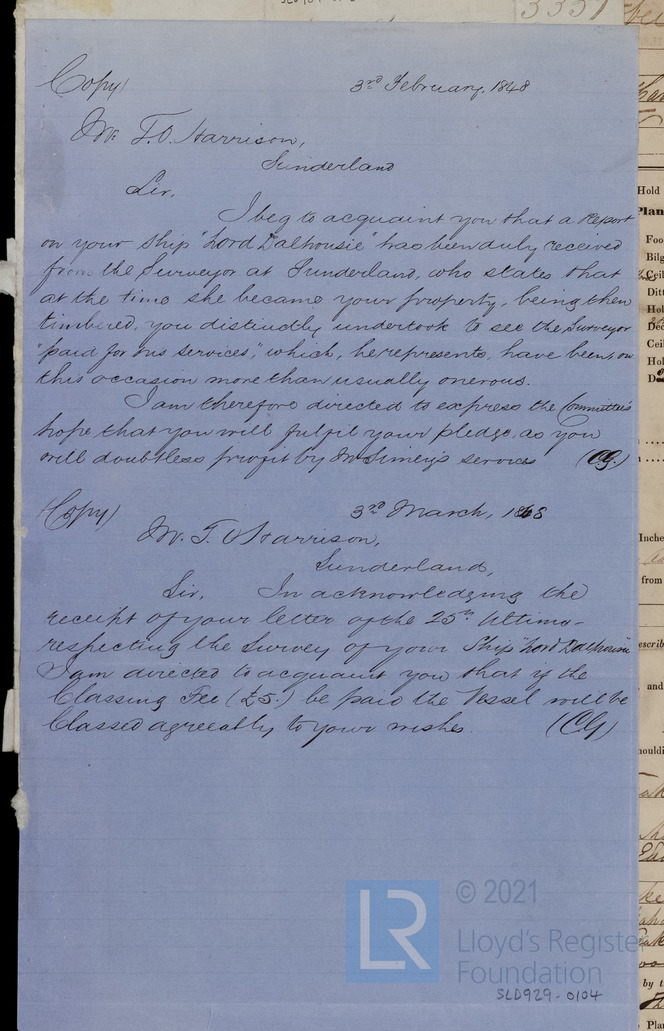 Copy
3rd February, 1848
Mr. T. O. Harrison,
Sunderland
Sir.
I beg to acquaint you that a Report
on your Ship "Lord Dalhousie" has been duly received
from the Surveyor at Sunderland, who states that
at the time she became your property, being then
timbered, you distinctly undertook to see the Surveyor
"paid for his services", which, he represents, have been on
this occasion more than usually onerous.
I am therefore directed to express the Committee's
hope that you will fulfil your pledge, as you
will doubtless profit by Mr Simey's services (CG)
Copy
3rd March, 1848
Mr. T. O Harrison,
Sunderland,
Sir. In acknowledging the
receipt of your letter of the 25th Ultimo
respecting the Survey of your Ship "Lord Dalhousie"
I am directed to acquaint you that if the
Classing Fee (£5.) be paid the Vessel will be
Classed agreeably to your wishes. (CG)
© 2021
LR
Lloyd's Register
Foundation
SLD929-0104
Hold
Plan
Foo
Bilg
Ceil
Ditt
Hol
Dec
Ceil
Hol
Inche
from
escrib
and
houldi
by t
Plan
3337